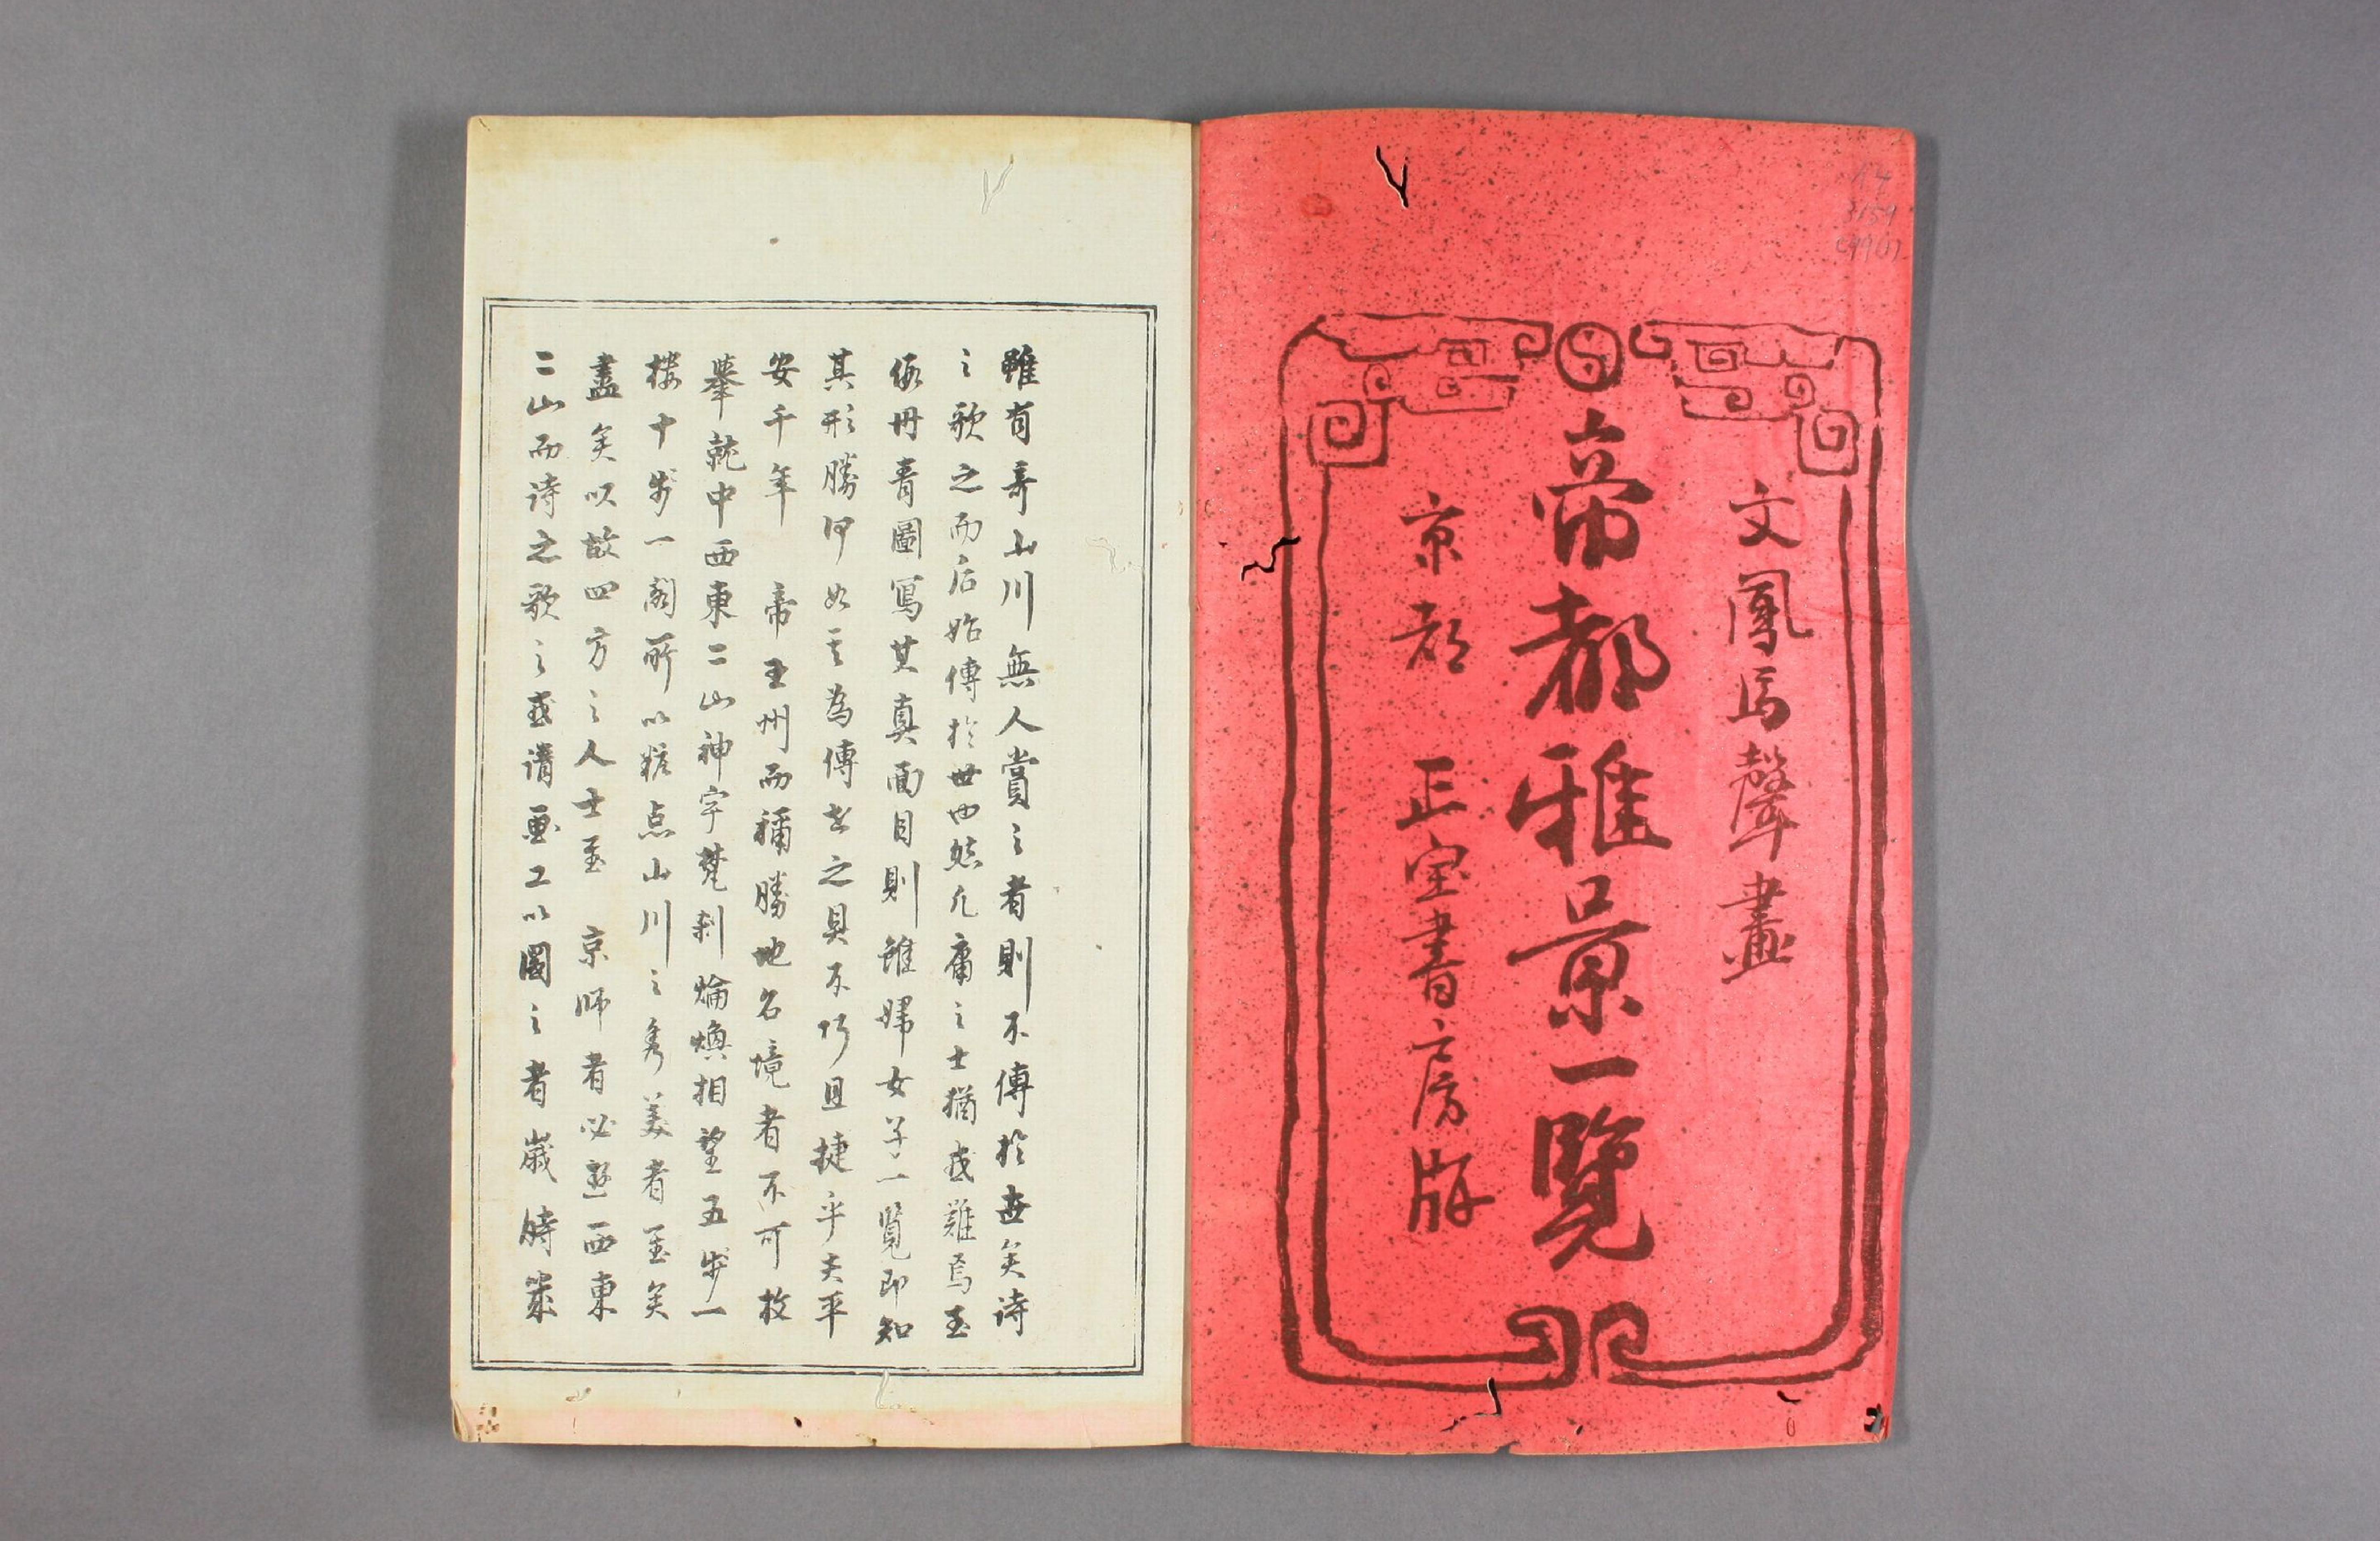 文鳳馬聲畫
帝都雅景一覧
京都 正宝書房版
雖有奇山川無人賞之者則不傳於世矣詩
之歌之而后始傳於世也然凡庸之士猶或難焉至
假丹青圖寫其真面目則雖婦女子一覧即知
其形勝何如其為傳世之具不巧且捷乎夫平
安千年 帝王州而稱勝地名境者不可枚
擧就中西東二山神宇梵刹焔煥相望五歩一
楼十歩一閣所以粧点山川之秀美者至矣
盡矣以故四方之人士至 京師者必遊西東
二山而詩之歌之或請画工以圖之者歳時幾